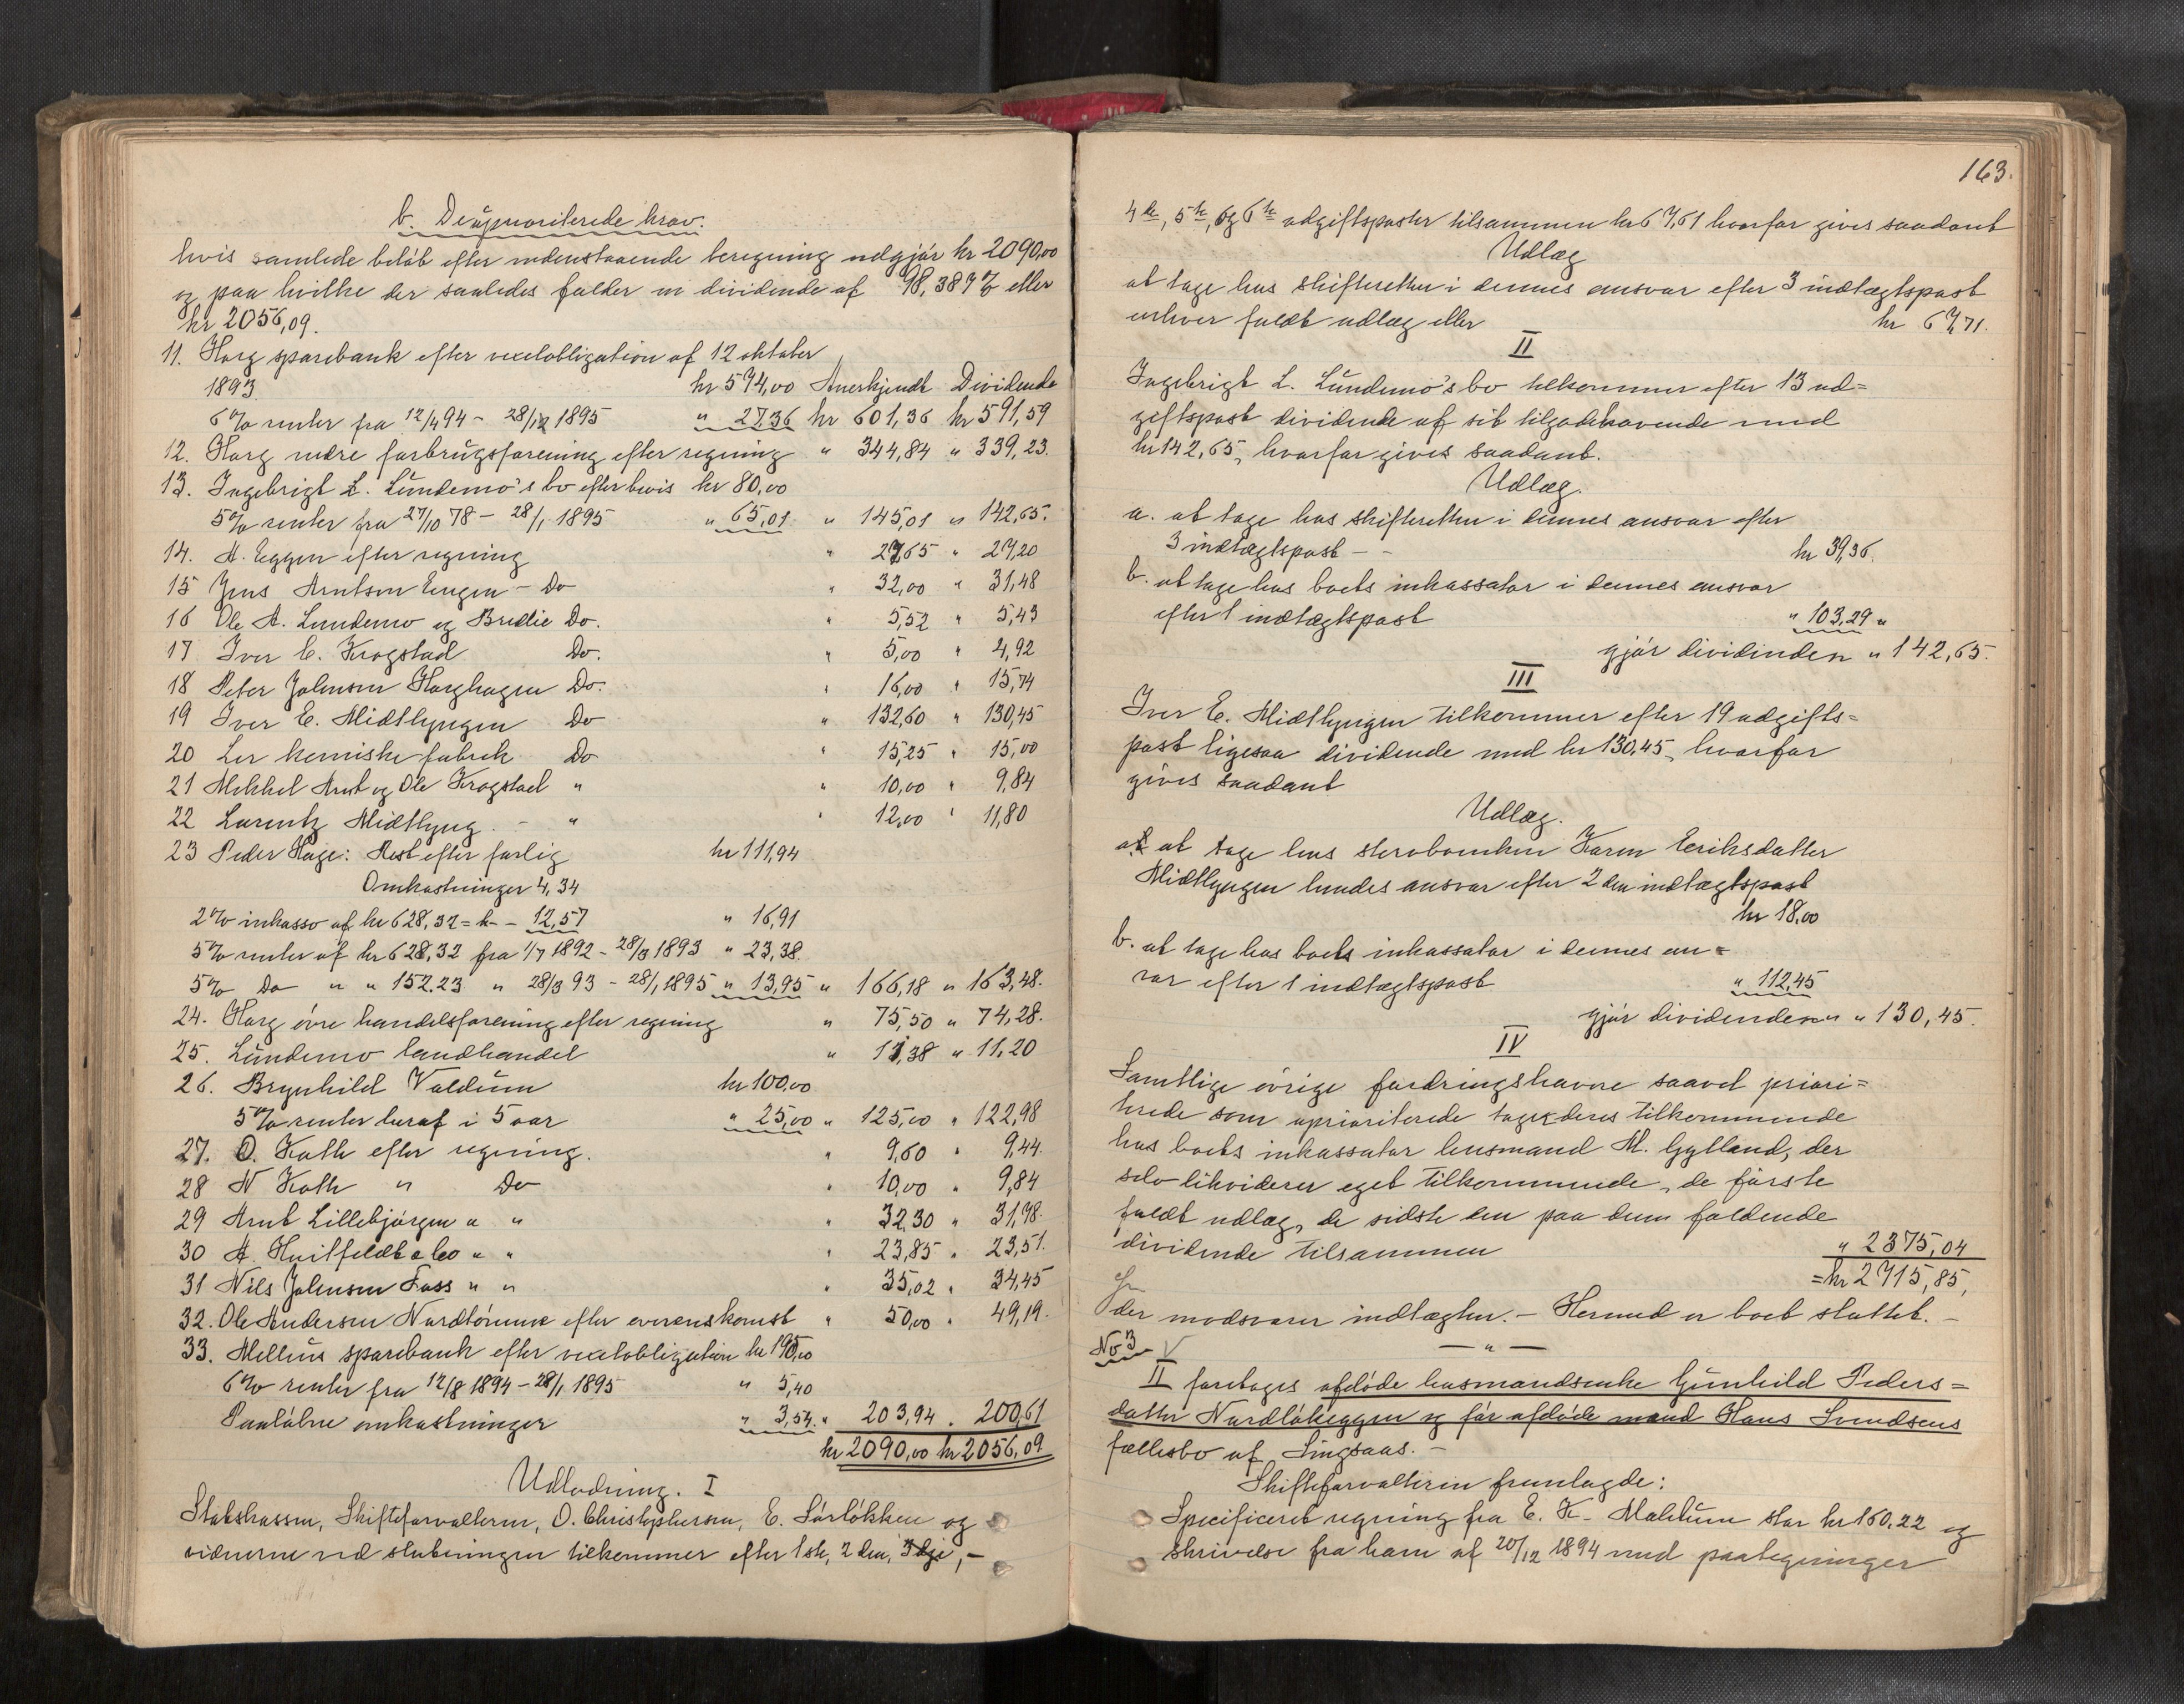 b. De uprioriterede krav.
hvis samlede beløb efter nedenstaaende beregning udgjør kr 2090,00
og paa hvilke der saaledes falder en dividende af 98,387% eller
kr 2056,09.
11. Horg sparebank efter vexelobligation af 12 oktober
1893 kr 574,00 Anerkjendt Dividende
6% renter fra 12/4 94 - 28/1 1895 " 27.36 kr 601,36 kr 591,59
12. Horg nedre forbrugsforening efter regning " 344,84 " 339,23.
13. Ingebrigt L. Lundemo's bo efter bevis kr 80,00
5% renter fra 27/10 78 - 28/1 1895 " 65,01 " 145,01 " 142,65.
14. A. Eggen efter regning " 27,65 " 27,20
15 Jens Arntsen Eugen - Do " 32,00 " 31,48
16 Ole A. Lundemo og Bredlie Do. " 5,52 " 5,43
17 Iver E. Krogstad Do. " 5,00 " 4,92
18 Peter Johnsen Horghagen Do. " 16,00 " 15,74
19 Iver E. Midtlyngen Do " 132,60 " 130,45
20 Ler kemiske fabrik Do " 15,25 " 15,00
21 Mikkel Arnt og Ole Krogstad " " 10,00 " 9,84
22 Lorentz Midtlyng. - " " 12,00 " 11,80
23 Peder Hage: Rest efter forlig kr 111,94
Omkostninger 4,34
2% inkasso af kr 628,32 = k - 12,57 " 16,91
5% renter af kr 628,32 fra 1/7 1892 - 28/3 1893 " 23,38.
5% Do " " 152.23 " 28/3 93 - 28/1 1895 " 13,95 " 166,18 " 163,48.
24. Horg øvre handelsforening efter regning " 75,50 " 74,28.
25. Lundemo landhandel " 11,38 " 11,20
26. Brynhild Valdum kr 100,00
5% renter heraf i 5 aar " 25,00 " 125,00 " 122,98
27. O. Kath efter regning. " 9,60 " 9,44.
28 N Kath " Do " 10,00 " 9,84
29 Arnt Lillebjørgen " " " 32,30 " 31,78.
30 A. Huitfeldt & Co " " " 23,85 " 23,51.
31 Nils Johnsen Foss " " " 35,02 " 34,45
32. Ole Andersen Nordtømme efter overenskomst " 50,00 " 49,19.
33. Melhus sparebank efter vexelobligation kr 195,00
6% renter fra 12/8 1894 - 28/1 1895 " 5,40
Paaløbne omkostninger " 3,54. " 203,94 . 200,61
kr 2090,00 kr 2056,09
Udlodning. I
Statskassen, Skifteforvalteren, O. Christophersen, E. Sørløkken og
vidnerne ved sluttningen tilkommer efter 1ste, 2den, 3dje, -
163.
4de, 5te, og 6te udgiftsposter tilsammen kr 67,61 hvorfor gives saadant
Udlæg
at tage hos skifteretten i dennes ansvar efter 3 indtægtspost
enhver fuldt udlæg eller kr 67,71.
II
Ingebrigt L. Lundemo's bo tilkommer efter 13 ud=
giftspost dividende af sit tilgodehavende med
kr 142,65, hvorfor gives saadant.
Udlæg.
a. at tage hos skifteretten i dennes ansvar efter
3 indtægtspost - - kr 39,36.
b. at tage hos boets inkassator i dennes ansvar
efter 1 indtægtspost " 103,29 "
gjør dividenden " 142,65.
III
Iver E. Midtlyngen tilkommer efter 19 udgifts=
post ligesaa dividende med kr 130,45, hvorfor
gives saadant
Udlæg.
a. at tage hos sterboenken Karen Eriksdatter
Midtlyngen hendes ansvar efter 2den indtægtspost
kr 18,00
b. at tage hos boets inkassator i dennes an=
svar efter 1 indtægtspost " 112,45
gjør dividenden " " 130,45.
IV
Samtlige øvrige fordringshavere saavel priori=
terede som uprioriterede tager deres tilkommende
hos boets inkassator lensmand M. Gylland, der
selv likviderer eget tilkommende, de første
fuldt udlæg, de sidste den paa dem faldende
dividende tilsammen " 2375,04
= kr 2715,85,
der modsvarer indtægten. - Hermed er boet sluttet. -
No 3 V - " -
II foretages afdøde husmandsenke Gunhild Peders=
datter Nordløkeggen og før afdøde mand Hans Svendsens
fællesbo af Singsaas. -
Skifteforvalteren fremlagde:
Specificeret regning fra E. K. Moldum stor kr 160.22 og
skrivelse fra ham af 20/12 1894 med paategninger